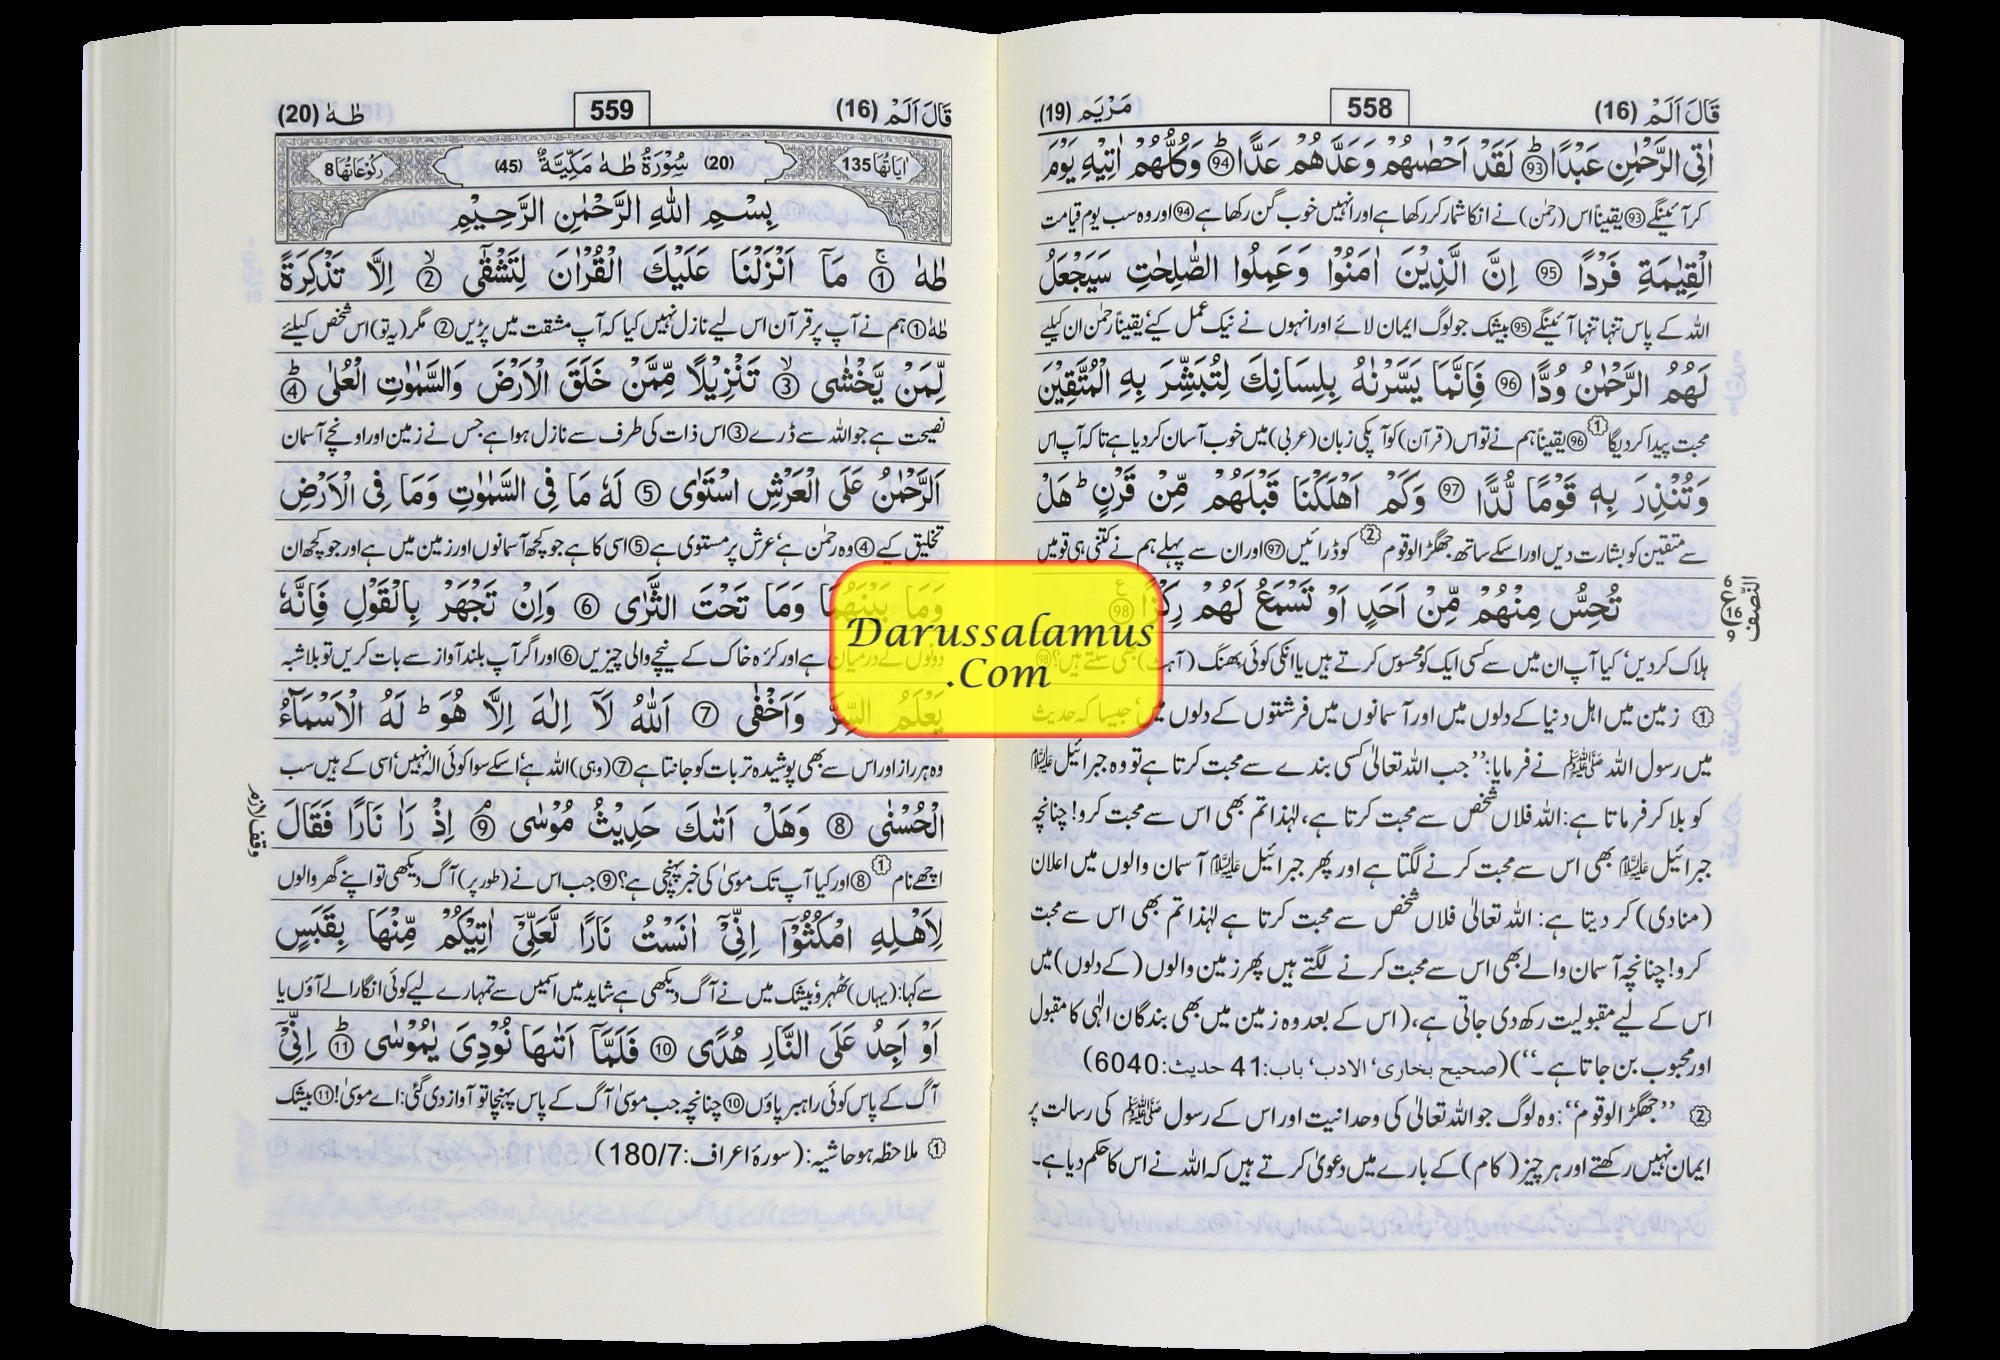 قَالَ اَلَمْ (16)
558
مَرْيَم (19)
اٰتِي الرَّحْمٰنِ عَبْدًا ﴿93﴾ لَقَدْ اَحْصٰىهُمْ وَعَدَّهُمْ عَدًّا ﴿94﴾ وَكُلُّهُمْ اٰتِيْهِ يَوْمَ
کر آئینگے ﴿93﴾ یقیناً اس (رحمٰن) نے انکا شمار کر رکھا ہے اور انہیں خوب گن رکھا ہے ﴿94﴾ اور وہ سب یوم قیامت
الْقِيٰمَةِ فَرْدًا ﴿95﴾ اِنَّ الَّذِيْنَ اٰمَنُوْا وَعَمِلُوا الصّٰلِحٰتِ سَيَجْعَلُ
اللہ کے پاس تنہا تنہا آئینگے ﴿95﴾ بیشک جو لوگ ایمان لائے اور انہوں نے نیک عمل کیے، یقیناً رحمٰن ان کیلیے
لَهُمُ الرَّحْمٰنُ وُدًّا ﴿96﴾ فَاِنَّمَا يَسَّرْنٰهُ بِلِسَانِكَ لِتُبَشِّرَ بِهِ الْمُتَّقِيْنَ
محبت پیدا کر دیگا ① ﴿96﴾ یقیناً ہم نے تو اس (قرآن) کو آپکی زبان (عربی) میں خوب آسان کر دیا ہے تاکہ آپ اس
وَتُنْذِرَ بِهٖ قَوْمًا لُّدًّا ﴿97﴾ وَكَمْ اَهْلَكْنَا قَبْلَهُمْ مِّنْ قَرْنٍ ؕ هَلْ
سے متقین کو بشارت دیں اور اسکے ساتھ جھگڑالو قوم ② کو ڈرائیں ﴿97﴾ اور ان سے پہلے ہم نے کتنی ہی قومیں
تُحِسُّ مِنْهُمْ مِّنْ اَحَدٍ اَوْ تَسْمَعُ لَهُمْ رِكْزًا ﴿98﴾
النصف
16
ہلاک کر دیں، کیا آپ ان میں سے کسی ایک کو محسوس کرتے ہیں یا انکی کوئی بھنک (آہٹ) بھی سنتے ہیں؟ ﴿98﴾
① زمین میں اہل دنیا کے دلوں میں اور آسمانوں میں فرشتوں کے دلوں میں، جیسا کہ حدیث
میں رسول اللہ ﷺ نے فرمایا: ’’جب اللہ تعالیٰ کسی بندے سے محبت کرتا ہے تو وہ جبرائیل علیہ السلام
کو بلا کر فرماتا ہے: اللہ فلاں شخص سے محبت کرتا ہے، لہٰذا تم بھی اس سے محبت کرو! چنانچہ
جبرائیل علیہ السلام بھی اس سے محبت کرنے لگتا ہے اور پھر جبرائیل علیہ السلام آسمان والوں میں اعلان
(منادی) کر دیتا ہے: اللہ تعالیٰ فلاں شخص سے محبت کرتا ہے لہٰذا تم بھی اس سے محبت
کرو! چنانچہ آسمان والے بھی اس سے محبت کرنے لگتے ہیں پھر زمین والوں (کے دلوں) میں
اس کے لیے مقبولیت رکھ دی جاتی ہے، (اس کے بعد وہ زمین میں بھی بندگان الٰہی کا مقبول
اور محبوب بن جاتا ہے۔‘‘) (صحیح بخاری، الادب، باب: 41 حدیث: 6040)
② ’’جھگڑالو قوم‘‘: وہ لوگ جو اللہ تعالیٰ کی وحدانیت اور اس کے رسول ﷺ کی رسالت پر
ایمان نہیں رکھتے اور ہر چیز (کام) کے بارے میں دعویٰ کرتے ہیں کہ اللہ نے اس کا حکم دیا ہے۔
قَالَ اَلَمْ (16)
559
طٰهٰ (20)
اٰيَاتُهَا 135
(20) سُوْرَةُ طٰهٰ مَكِّيَّةٌ (45)
رُكُوْعَاتُهَا 8
بِسْمِ اللّٰهِ الرَّحْمٰنِ الرَّحِيْمِ
طٰهٰ ﴿1﴾ مَاۤ اَنْزَلْنَا عَلَيْكَ الْقُرْاٰنَ لِتَشْقٰٓى ﴿2﴾ اِلَّا تَذْكِرَةً
طٰہٰ ﴿1﴾ ہم نے آپ پر قرآن اس لیے نازل نہیں کیا کہ آپ مشقت میں پڑیں ﴿2﴾ مگر (یہ تو) اس شخص کیلئے
لِّمَنْ يَّخْشٰى ﴿3﴾ تَنْزِيْلًا مِّمَّنْ خَلَقَ الْاَرْضَ وَالسَّمٰوٰتِ الْعُلٰى ﴿4﴾
نصیحت ہے جو اللہ سے ڈرے ﴿3﴾ اس ذات کی طرف سے نازل ہوا ہے جس نے زمین اور اونچے آسمان
اَلرَّحْمٰنُ عَلَى الْعَرْشِ اسْتَوٰى ﴿5﴾ لَهٗ مَا فِى السَّمٰوٰتِ وَمَا فِى الْاَرْضِ
تخلیق کیے ﴿4﴾ وہ رحمٰن ہے، عرش پر مستوی ہے ﴿5﴾ اسی کا ہے جو کچھ آسمانوں اور زمین میں ہے اور جو کچھ ان
وَمَا بَيْنَهُمَا وَمَا تَحْتَ الثَّرٰى ﴿6﴾ وَاِنْ تَجْهَرْ بِالْقَوْلِ فَاِنَّهٗ
دونوں کے درمیان ہے اور کرّہ خاک کے نیچے والی چیزیں ﴿6﴾ اور اگر آپ بلند آواز سے بات کریں تو بلاشبہ
يَعْلَمُ السِّرَّ وَاَخْفٰى ﴿7﴾ اَللّٰهُ لَاۤ اِلٰهَ اِلَّا هُوَ ؕ لَهُ الْاَسْمَآءُ
وہ ہر راز اور اس سے بھی پوشیدہ تر بات کو جانتا ہے ﴿7﴾ (وہی) اللہ ہے، اسکے سوا کوئی الٰہ نہیں، اسی کے ہیں سب
الْحُسْنٰى ﴿8﴾ وَهَلْ اَتٰىكَ حَدِيْثُ مُوْسٰى ﴿9﴾ اِذْ رَاٰ نَارًا فَقَالَ
وقف لازم
اچھے نام ① ﴿8﴾ اور کیا آپ تک موسیٰ کی خبر پہنچی ہے؟ ﴿9﴾ جب اس نے (طور پر) آگ دیکھی تو اپنے گھر والوں
لِاَهْلِهِ امْكُثُوْۤا اِنِّىْۤ اٰنَسْتُ نَارًا لَّعَلِّىْۤ اٰتِيْكُمْ مِّنْهَا بِقَبَسٍ
سے کہا: (یہاں) ٹھہرو، بیشک میں نے آگ دیکھی ہے شاید میں اسمیں سے تمہارے لیے کوئی انگارا لے آؤں یا
اَوْ اَجِدُ عَلَى النَّارِ هُدًى ﴿10﴾ فَلَمَّاۤ اَتٰىهَا نُوْدِىَ يٰمُوْسٰى ﴿11﴾ اِنِّىْۤ
آگ کے پاس کوئی راہبر پاؤں ﴿10﴾ چنانچہ جب موسیٰ آگ کے پاس پہنچا تو آواز دی گئی: اے موسیٰ! ﴿11﴾ بیشک
① ملاحظہ ہو حاشیہ: (سورۂ اعراف: 180/7)
Darussalamus
.Com